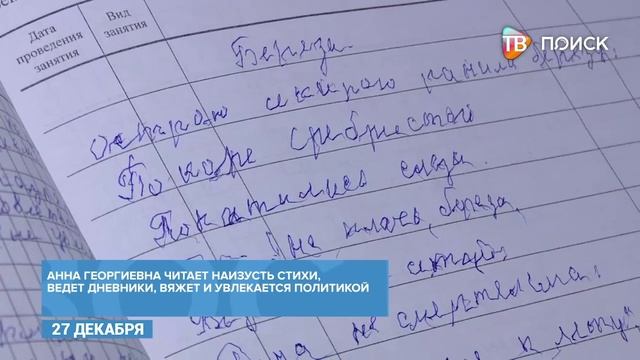 Дата
проведения
занятия
Вид
занятия
ТВ ПОИСК
Береза
острою секирою ранили березу,
По коре сребристой
Покатились слезы.
не плачь, береза,
не смертельна,
к лету
АННА ГЕОРГИЕВНА ЧИТАЕТ НАИЗУСТЬ СТИХИ,
ВЕДЕТ ДНЕВНИКИ, ВЯЖЕТ И УВЛЕКАЕТСЯ ПОЛИТИКОЙ
27 ДЕКАБРЯ